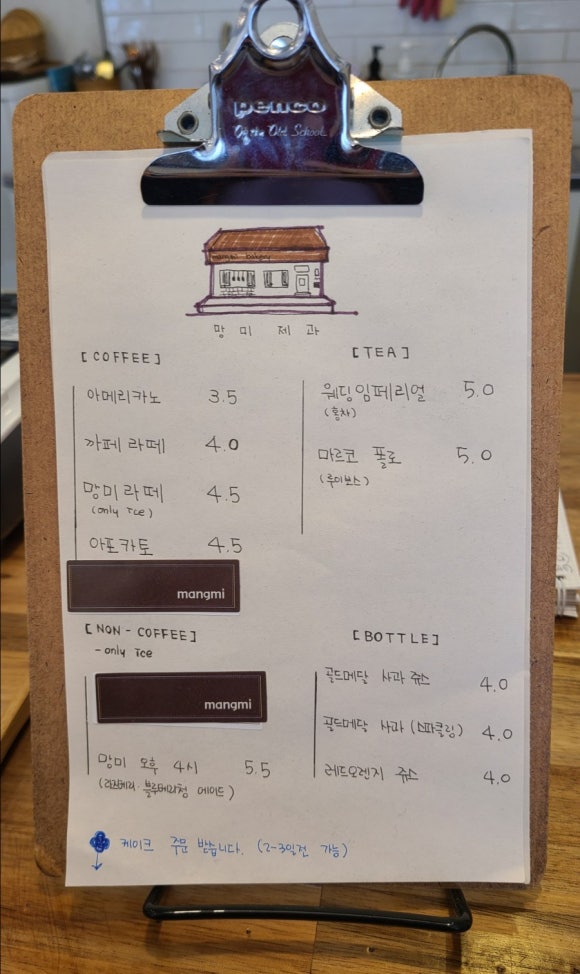 penco
Of the Old School
mangmi bakery
망미 제과
[COFFEE]
아메리카노 3.5
까페라떼 4.0
망미라떼 4.5
(only ice)
아포카토 4.5
mangmi
[TEA]
웨딩임페리얼 5.0
(홍차)
마르코 폴로 5.0
(루이보스)
[NON-COFFEE]
-only ice
mangmi
망미 오후 4시 5.5
(라즈베리·블루베리청 에이드)
[BOTTLE]
골드메달 사과쥬스 4.0
골드메달 사과(스파클링) 4.0
레드오렌지 쥬스 4.0
케이크 주문 받습니다. (2-3일전 가능)